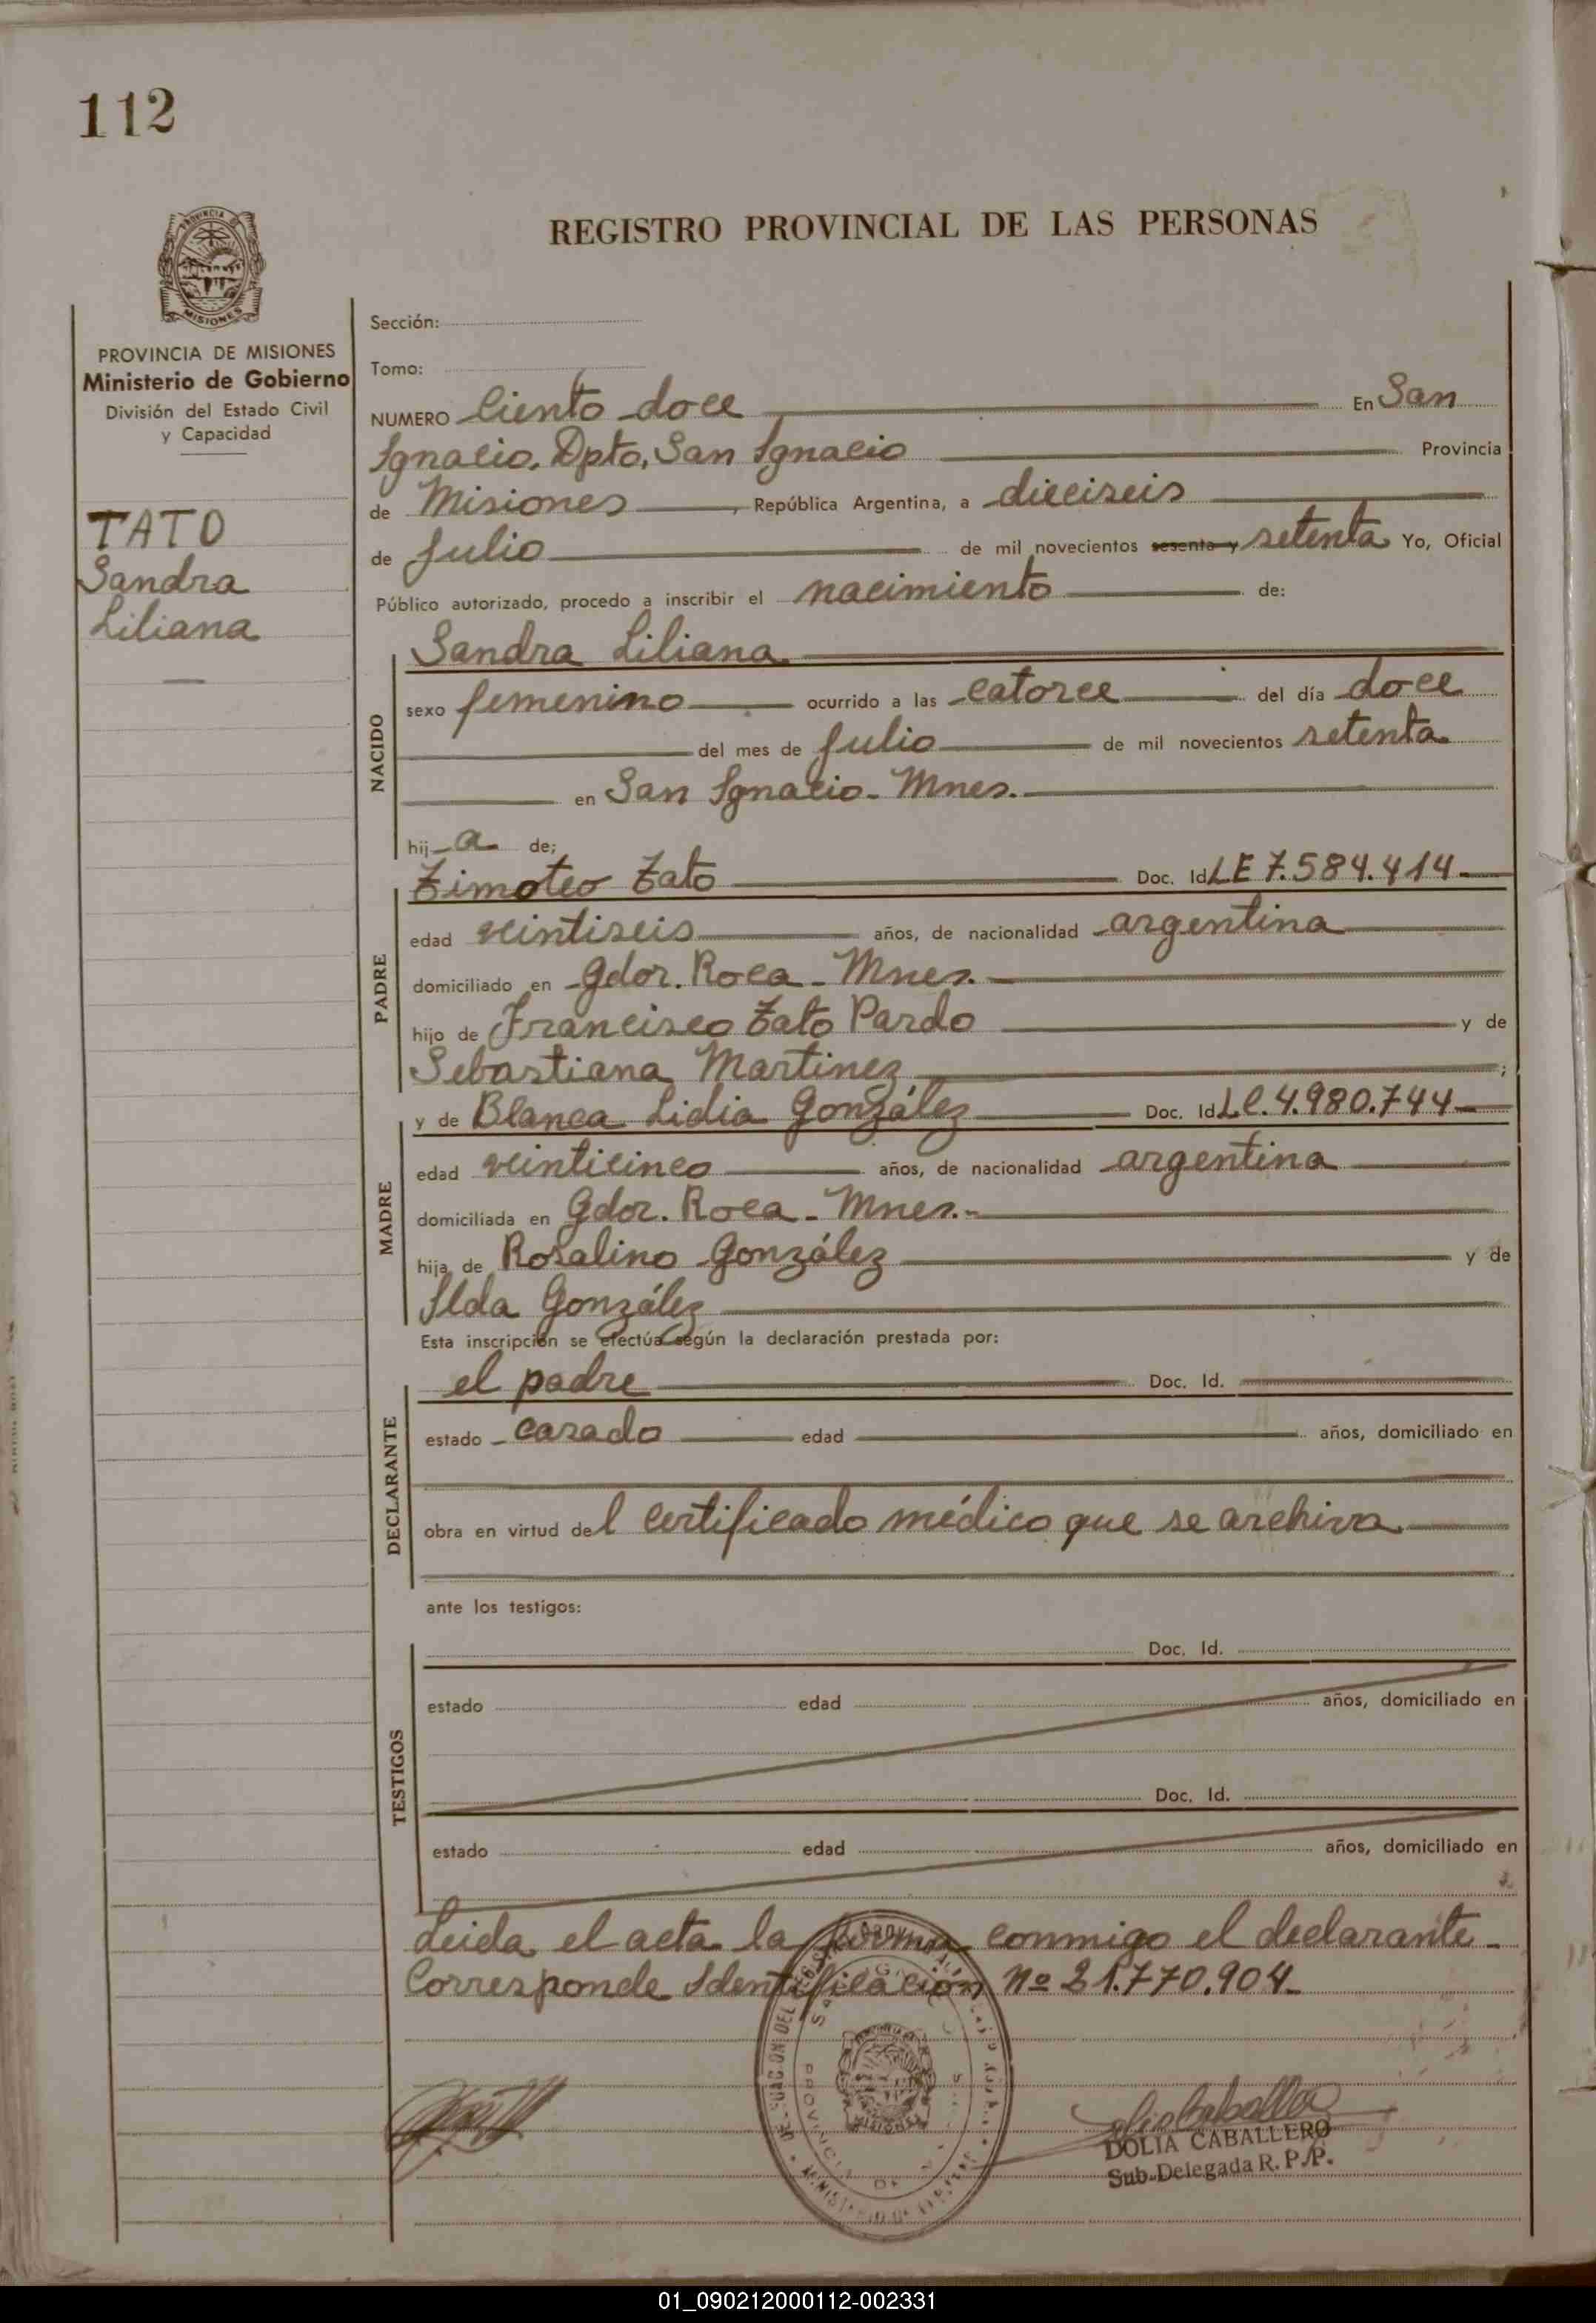 112
REGISTRO PROVINCIAL DE LAS PERSONAS
PROVINCIA DE MISIONES
Ministerio de Gobierno
División del Estado Civil
y Capacidad
TATO
Sandra
Liliana
Sección:
Tomo:
NUMERO Ciento doce En San
Ignacio, Dpto, San Ignacio Provincia
de Misiones, República Argentina, a dieciseis
de Julio de mil novecientos sesenta y setenta Yo, Oficial
Público autorizado, procedo a inscribir el nacimiento de:
NACIDO
Sandra Liliana
sexo femenino ocurrido a las catorce del día doce
del mes de Julio de mil novecientos setenta
en San Ignacio - Mnes.
hij a de;
PADRE
Timoteo Tato Doc. Id. LE 7.584.414
edad veintiseis años, de nacionalidad argentina
domiciliado en Gdor. Roca - Mnes.
hijo de Francisco Tato Pardo y de
Sebastiana Martinez ;
MADRE
y de Blanca Lidia González Doc. Id. L.C. 4.980.744
edad veinticinco años, de nacionalidad argentina
domiciliada en Gdor. Roca - Mnes.-
hija de Rosalino González y de
Ilda González
Esta inscripción se efectúa según la declaración prestada por:
DECLARANTE
el padre Doc. Id.
estado casado edad años, domiciliado en
obra en virtud del certificado médico que se archiva
ante los testigos:
TESTIGOS
Doc. Id.
estado edad años, domiciliado en
Doc. Id.
estado edad años, domiciliado en
Leida el acta la firma conmigo el declarante -
Corresponde Identificación Nº 21.770.904
MISIONES
DOLIA CABALLERO
Sub-Delegada R. P. P.
01_090212000112-002331